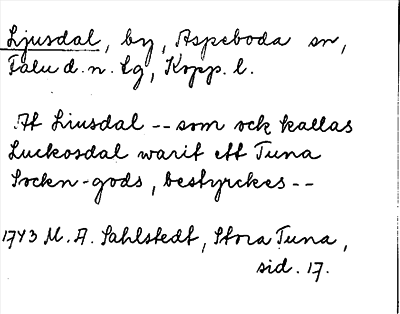 Ljusdal, by, Aspeboda sn,
Falu d. n. lg, Kopp. l.
At Liusdal -- som ock kallas
Luckosdal warit ett Tuna
Sockn-gods, bestyrckes --
1743 M. A. Sahlstedt, Stora Tuna,
sid. 17.